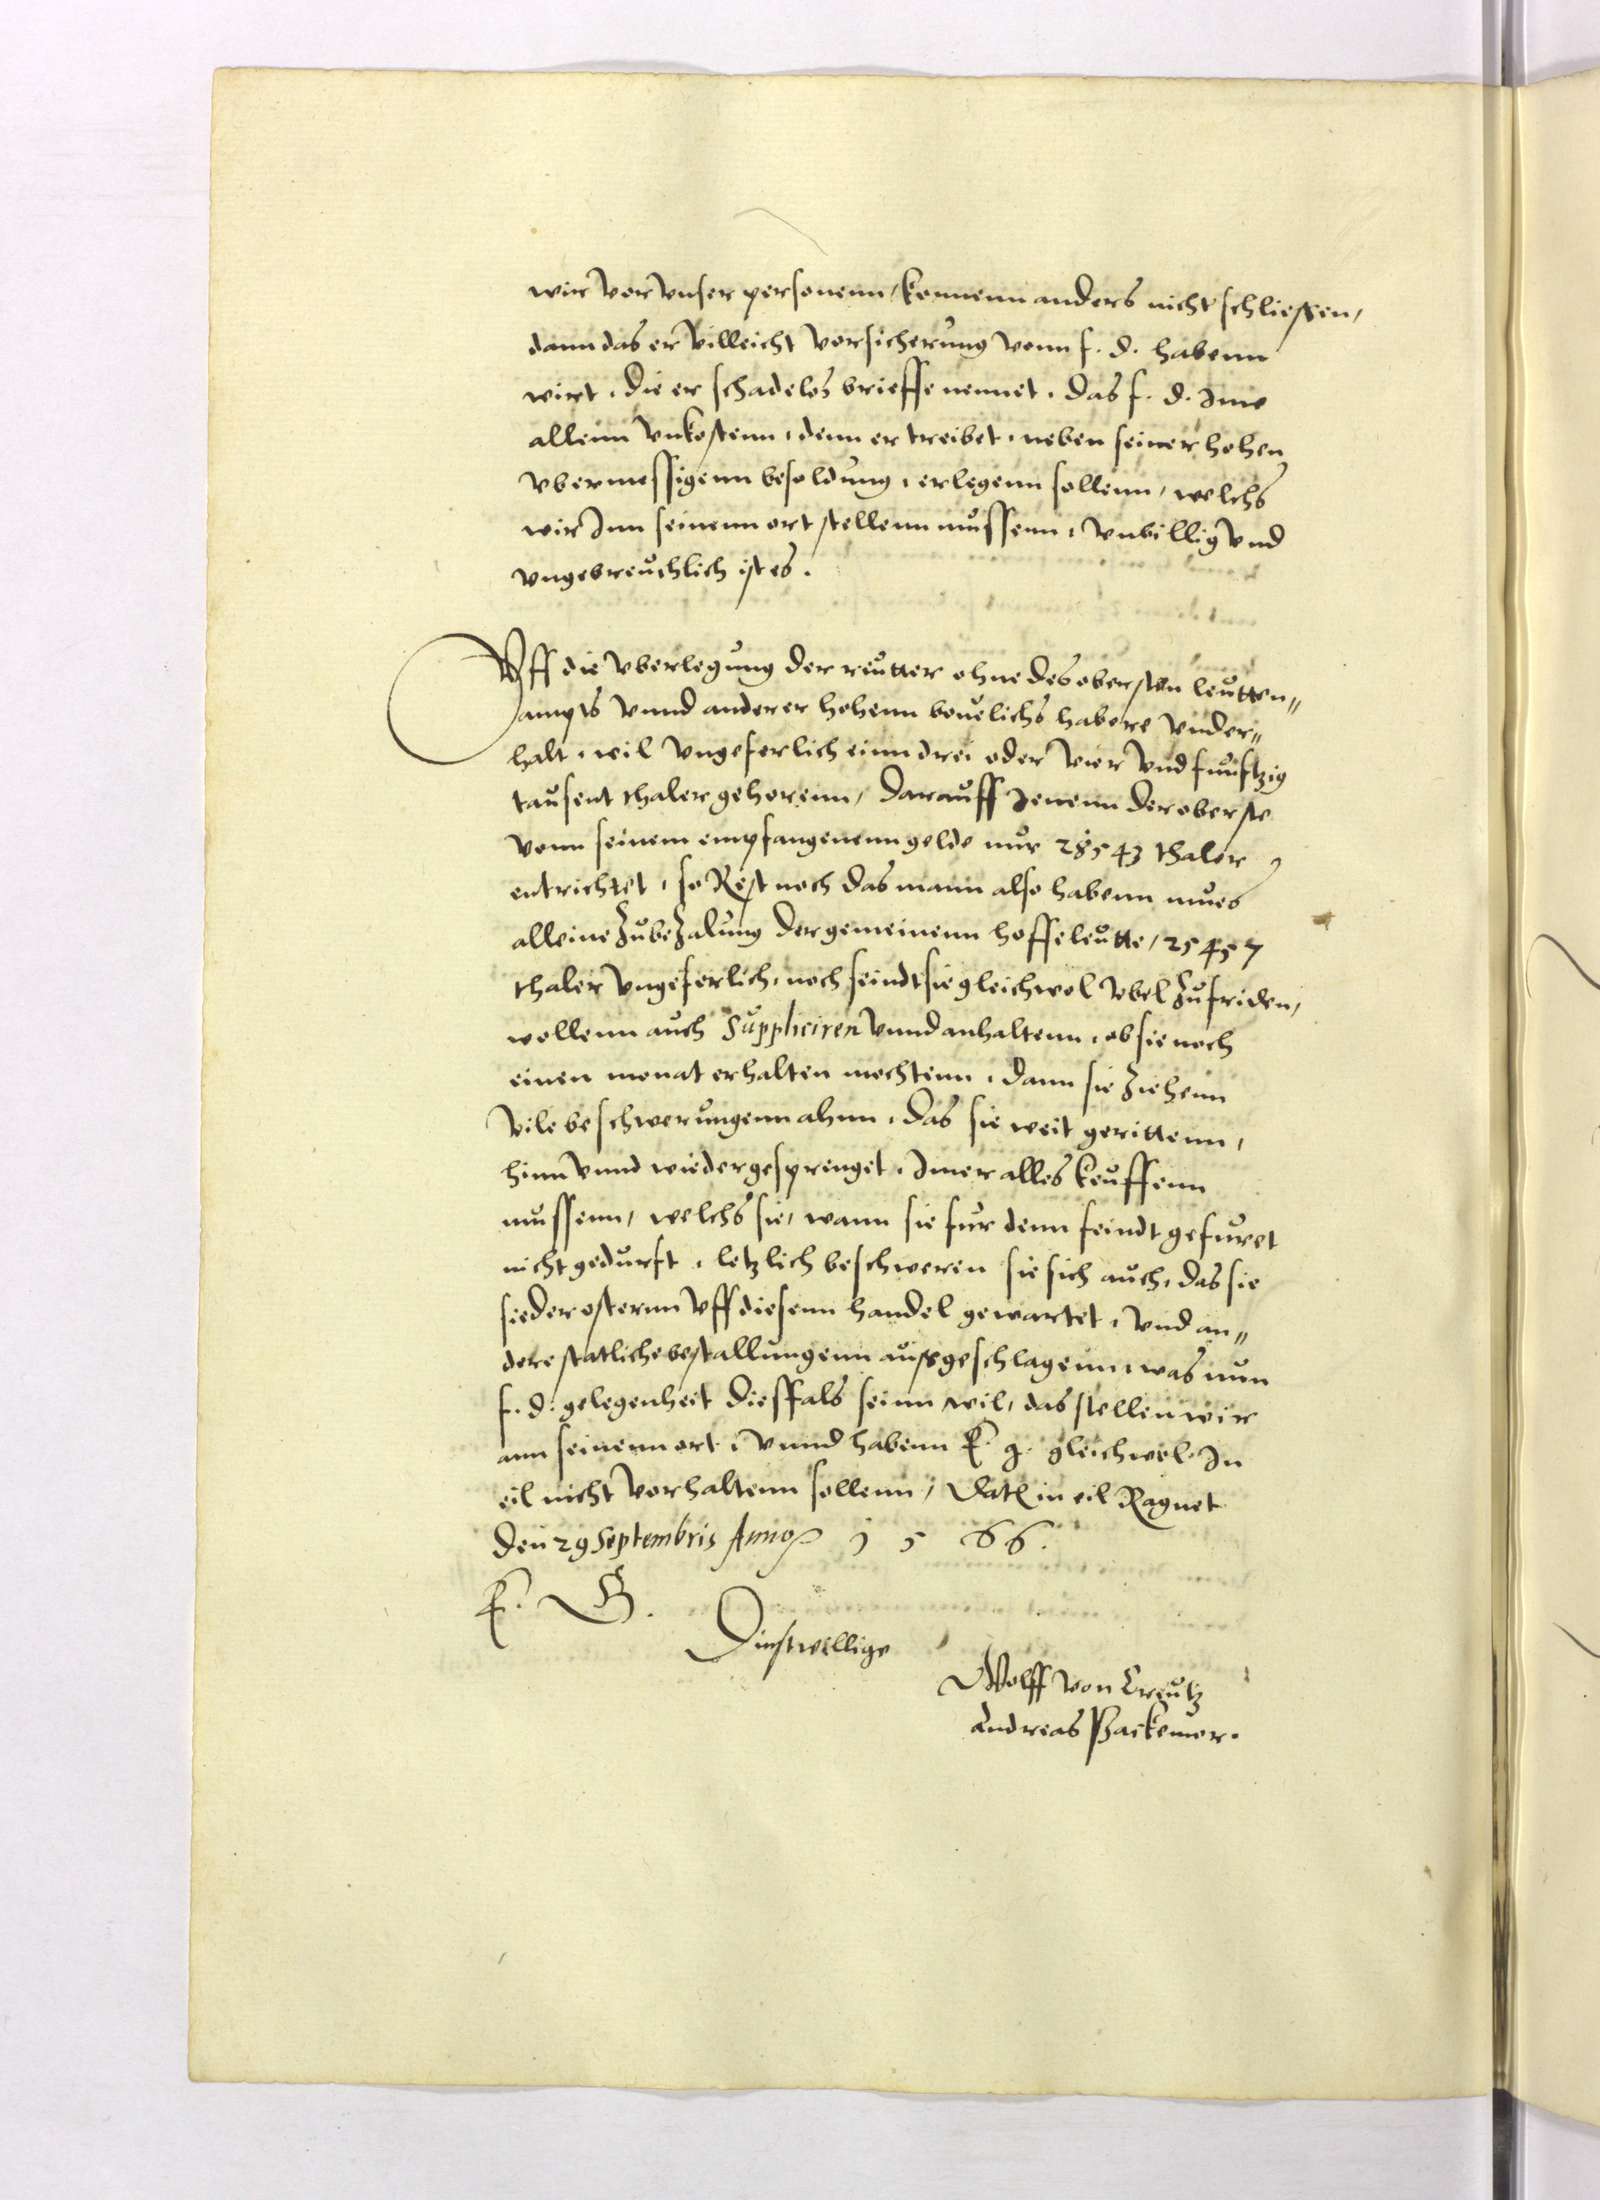 wir vor vnser personenn, konnenn anders nicht schliessen,
dann das er villeicht vorsicherung vonn f. d. habenn
wirt, die er schadelos brieffe nennet, das f. d. Ime
allenn vnkostenn, denn er treibet, neben seiner hohen
vbermessigenn besoldung, erlegenn sollenn, welchs
wir Inn seinenn ort stellenn mussenn, vnbillig vnd
vngebreuchlich ist es.
Vff die vberlegung der reutter ohne des obersten leutten„
ampts vnnd anderer hohenn beuelichs habere vnder„
halt, weil vngeferlich einn drei oder vier vnd funfftzig
tausent thaler gehorenn, darauff Jenenn der oberste
vonn seinem empfangenenn gelde nur 28543 thaler
entrichtet, so Rest noch das mann also habenn mues
alleine zu bezalung der gemeinenn hoffeleutte, 25457
thaler vngeferlich, noch seindt sie gleichwol vbel zufriden,
wollenn auch Suppliciren vnnd anhaltenn, ob sie noch
einen monat erhalten mochtenn, dann sie ziehenn
vile beschwerungenn ahnn, das sie weit gerittenn,
hinn vnnd wieder gesprenget, Imer alles keuffenn
mussenn, welchs sie, wann sie fur denn feindt gefuret
nicht gedurft, letzlich beschweren sie sich auch, das sie
sieder osternn vff diesenn handel gewartet, vnd an„
dere statliche bestallungenn aussgeschlagenn, was nun
f. d. gelegenheit diesfals seinn wil, das stellen wir
ann seinenn ort, vnnd habenn E. g. gleichwol In
eil nicht vorhaltenn sollenn, Dat. in eil Ragnet
den 29 Septembris Anno 1566.
E. G.
Dinstwillige
Wolff von Creutz
Andreas Packemor.